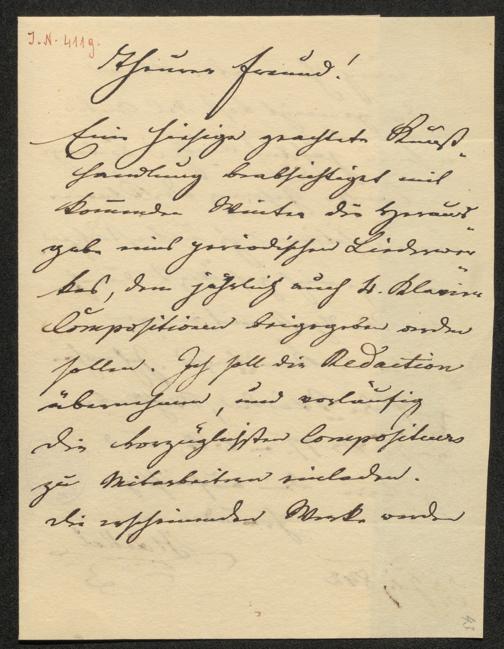 I.N. 4119.
Theurer Freund!
Eine hiesige geachtete Kunst-
handlung beabsichtiget mit
kommenden Winter die Heraus-
gabe eines periodischen Liederwer-
kes, dem jährlich auch 4. Klavier
Compositionen beigegeben werden
sollen. Ich soll die Redaction
übernehmen, und vorläufig
die vorzüglichsten Compositeurs
zu Mitarbeitern einladen.
Die erscheinenden Werke werden